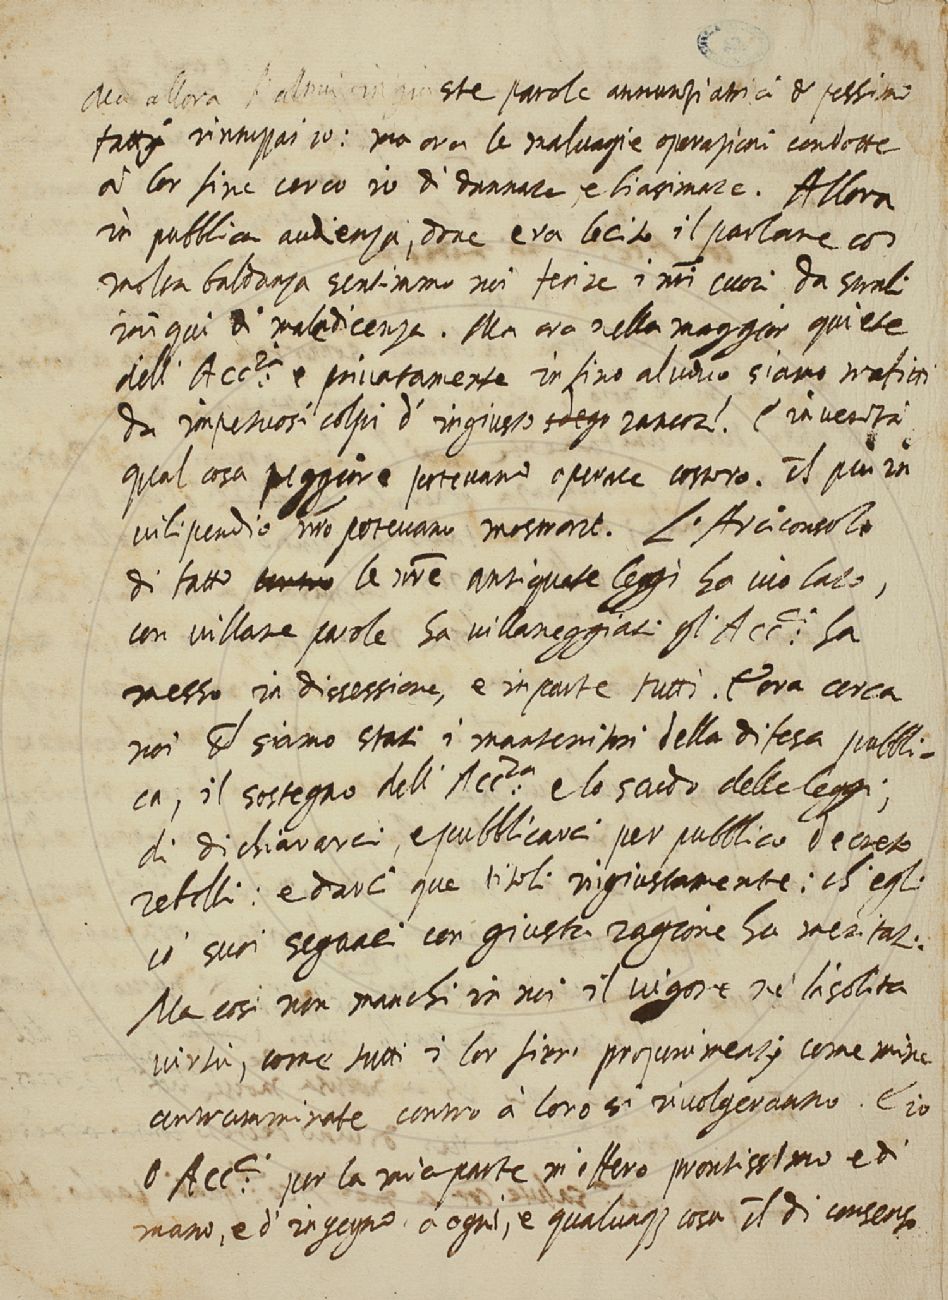 Ma allora l'altrui ingiuste parole annunziatrici di pessimi
fatti rintuzzai io: ma ora le malvagie operazioni condotte
à lor fine cerco io di dannare, e biasimare. Allora
in pubblica audienza, dove era lecito il parlare co
molta baldanza sentimmo noi ferire i nri cuori da strali
iniqui di maledicenza. Ma ora nella maggior quiete
dell' Acc.ª e privatamente infino al vivo siamo trafitti
da impetuosi colpi d' ingiusto sdegno rancore. E in verità
qual cosa peggiore potevano operare costoro. Il più in
vilipendio nro potevano mostrare. L' Arciconsolo
di fatto contro le nre antiquate leggi ha violato,
con villane parole ha villaneggiati gl' Acc.ci ha
messo in dissessione, e in parte tutti. E ora cerca
noi che siamo stati i mantenitori della difesa pubbli-
ca, il sostegno dell' Acc.ª e lo scudo delle leggi,
di dichiararci, e pubblicarci per pubblico decreto
rebelli: e darci que titoli ingiustamente: ch'egli
co' suoi seguaci con giusta ragione ha meritati.
Ma così non manchi in noi il vigore nè la solita
virtù, come tutti i lor fieri proponimenti come mine
contramminate contro à loro si rivolgeranno. E io
O Acc.ci per la mia parte m'offero prontissimo e di
mano, e d' ingegno à ogni, e qualunq cosa che di consenso